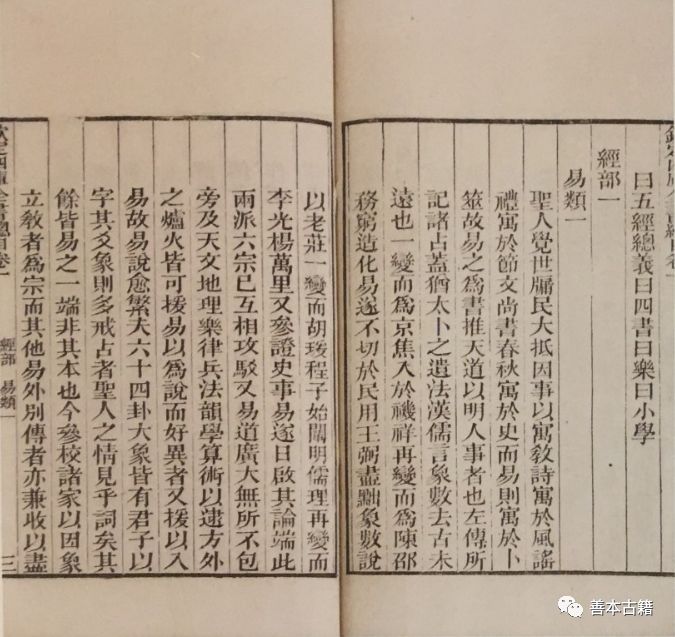 曰五經總義曰四書曰樂曰小學
經部一
易類一
聖人覺世牖民大抵因事以寓敎詩寓於風謠
禮寓於節文尚書春秋寓於史而易則寓於卜
筮故易之爲書推天道以明人事者也左傳所
記諸占蓋猶太卜之遺法漢儒言象數去古未
遠也一變而爲京焦入於禨祥再變而爲陳邵
務窮造化易遂不切於民用王弼盡黜象數說
以老莊一變而胡瑗程子始闡明儒理再變而
李光楊萬里又參證史事易遂日啟其論端此
兩派六宗已互相攻駁又易道廣大無所不包
旁及天文地理樂律兵法韻學算術以逮方外
之爐火皆可援易以爲說而好異者又援以入
易故易說愈繁夫六十四卦大象皆有君子以
字其爻象則多戒占者聖人之情見乎詞矣其
餘皆易之一端非其本也今參校諸家以因象
立敎者爲宗而其他易外別傳者亦兼收以盡
經部 易類一
三
善本古籍